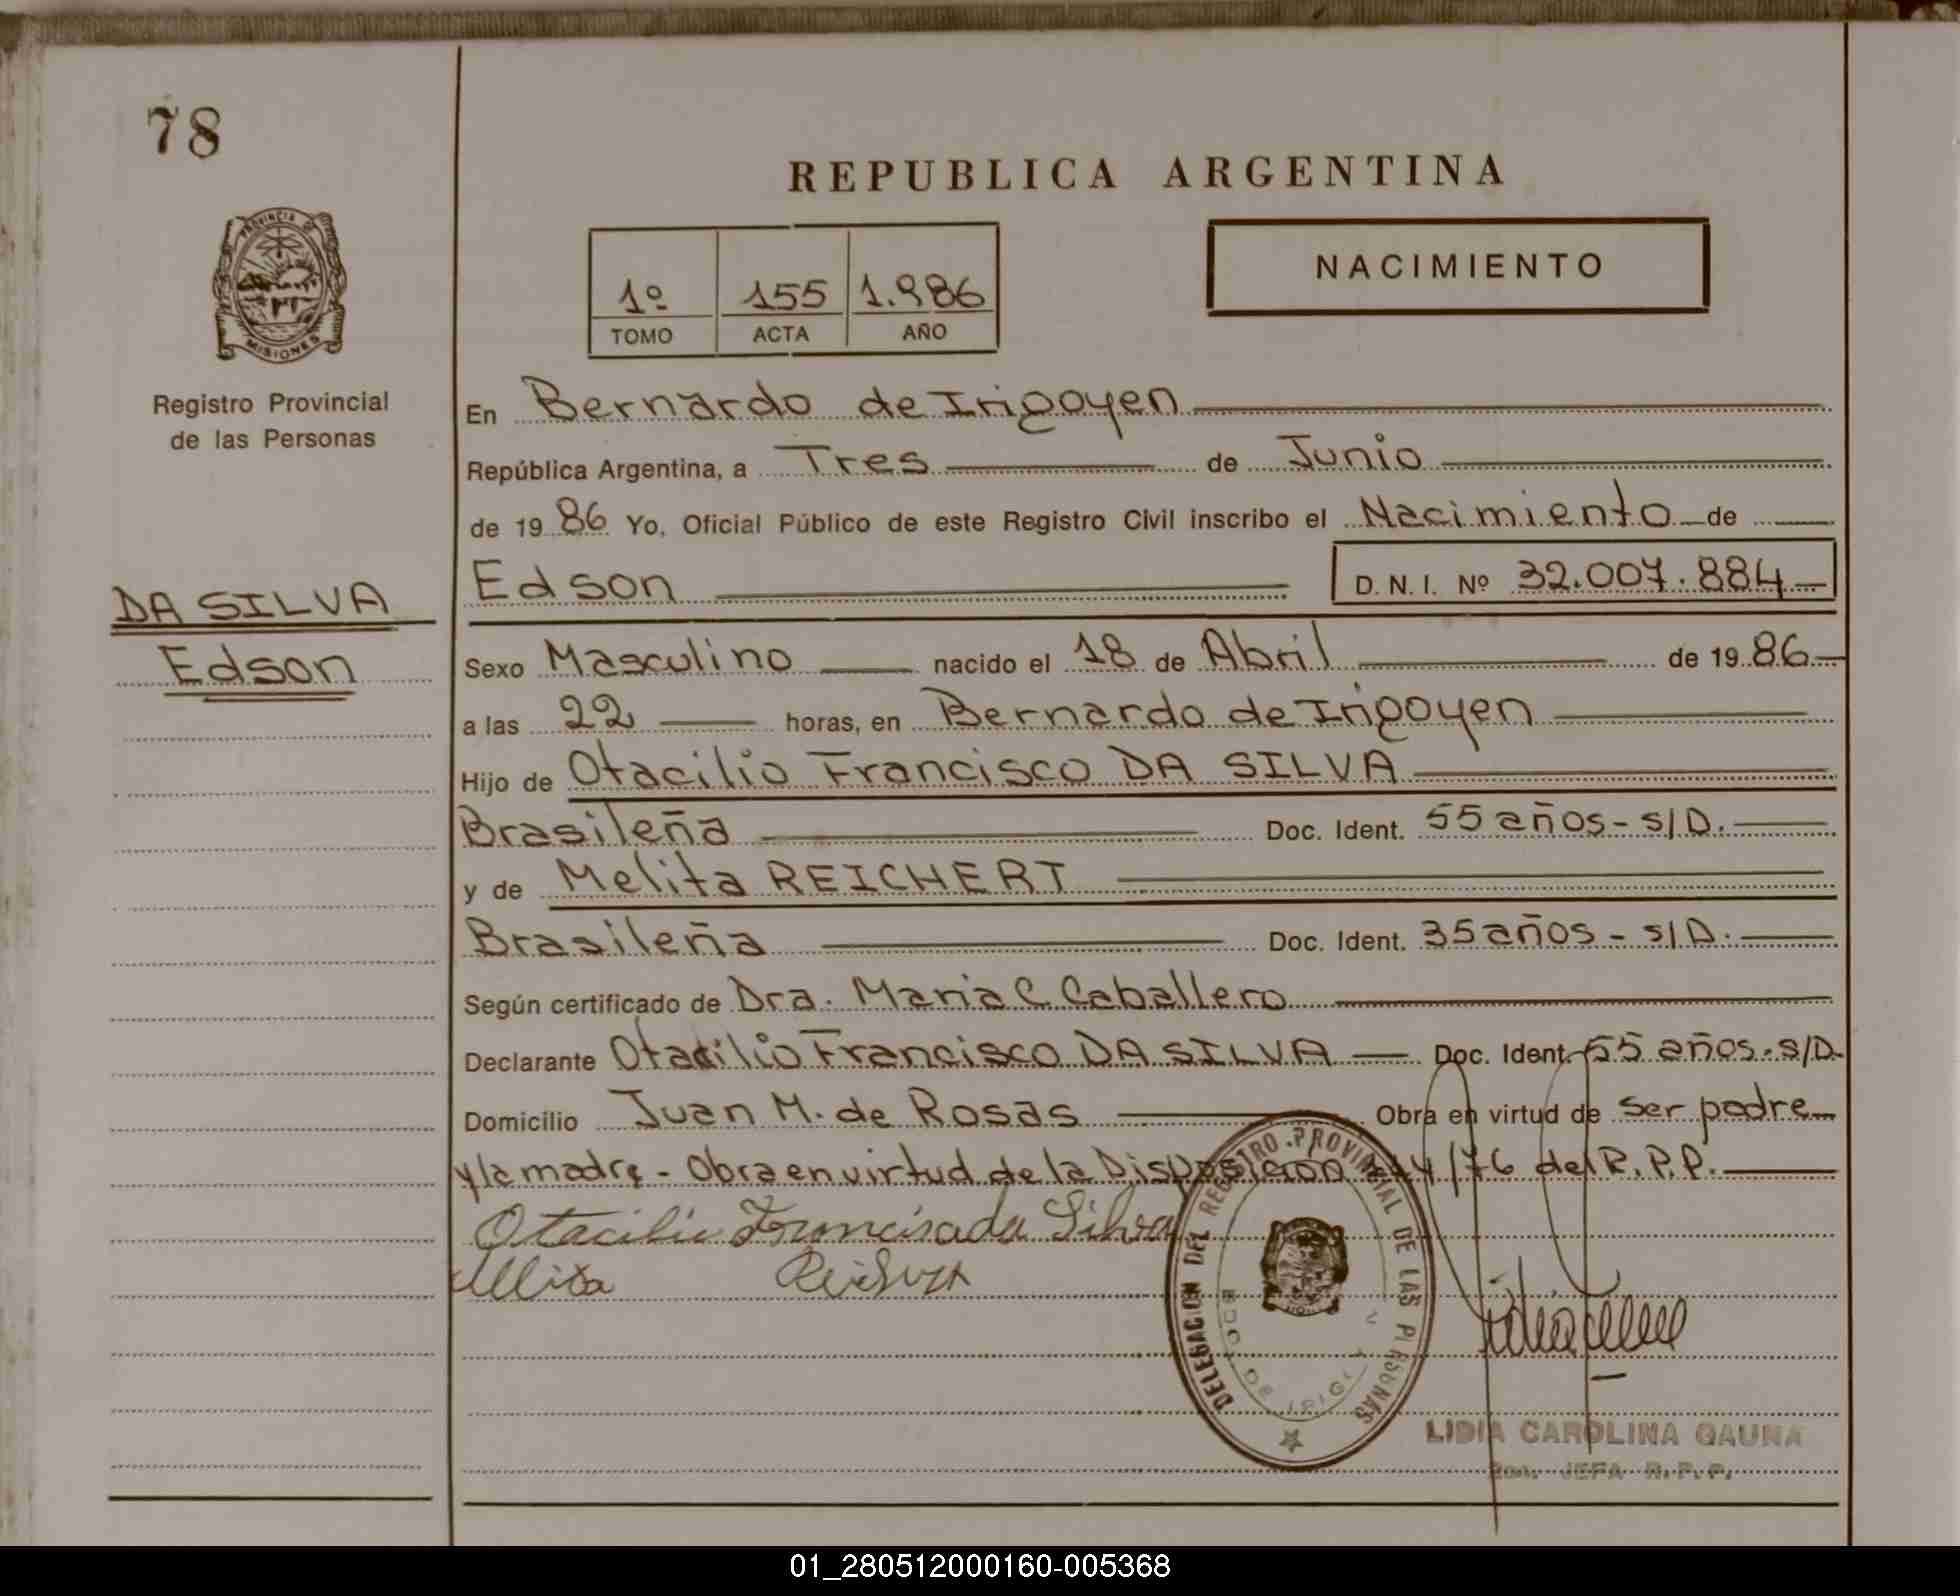 78
REPUBLICA ARGENTINA
PROVINCIA DE
MISIONES
NACIMIENTO
1º 155 1.986
TOMO ACTA AÑO
Registro Provincial
de las Personas
En Bernardo de Irigoyen
República Argentina, a Tres de Junio
de 19 86 Yo, Oficial Público de este Registro Civil inscribo el Nacimiento de
DA SILVA
Edson
Edson D. N. I. Nº 32.007.884
Sexo Masculino nacido el 18 de Abril de 19 86
a las 22 horas, en Bernardo de Irigoyen
Hijo de Otacilio Francisco DA SILVA
Brasileña Doc. Ident. 55 años - s/D.
y de Melita REICHERT
Brasileña Doc. Ident. 35 años - s/D.
Según certificado de Dra. Maria C. Caballero
Declarante Otacilio Francisco DA SILVA Doc. Ident. 55 años - s/D.
Domicilio Juan M. de Rosas Obra en virtud de ser padre
y la madre - Obra en virtud de la Disposicion /76 del R.P.P.
Otacilio Francisco da Silva
DELEGACION DEL REGISTRO PROVINCIAL DE LAS PERSONAS
BDO. DE IRIGOYEN
LIDIA CAROLINA GAUNA
JEFA R.P.P.
01_280512000160-005368